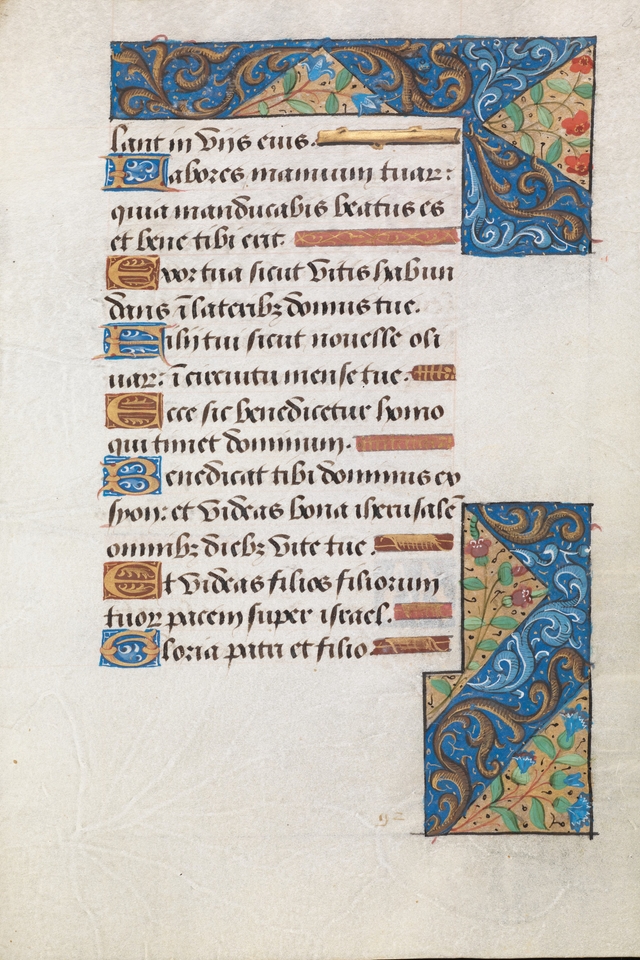 lant in viis eius.
Labores manuum tuaꝝ:
quia manducabis beatus es
et bene tibi erit.
Uxor tua sicut vitis habun
dans ī laterib⁊ domus tue.
Filii tui sicut nouelle oli
uaꝝ: ī circuitu mense tue.
Ecce sic benedicetur homo
qui timet dominum.
Benedicat tibi dominus ex
syon: et videas bona iherusalē
omnib⁊ dieb⁊ vite tue.
Et videas filios filiorum
tuoꝝ pacem super israel.
Gloria patri et filio.